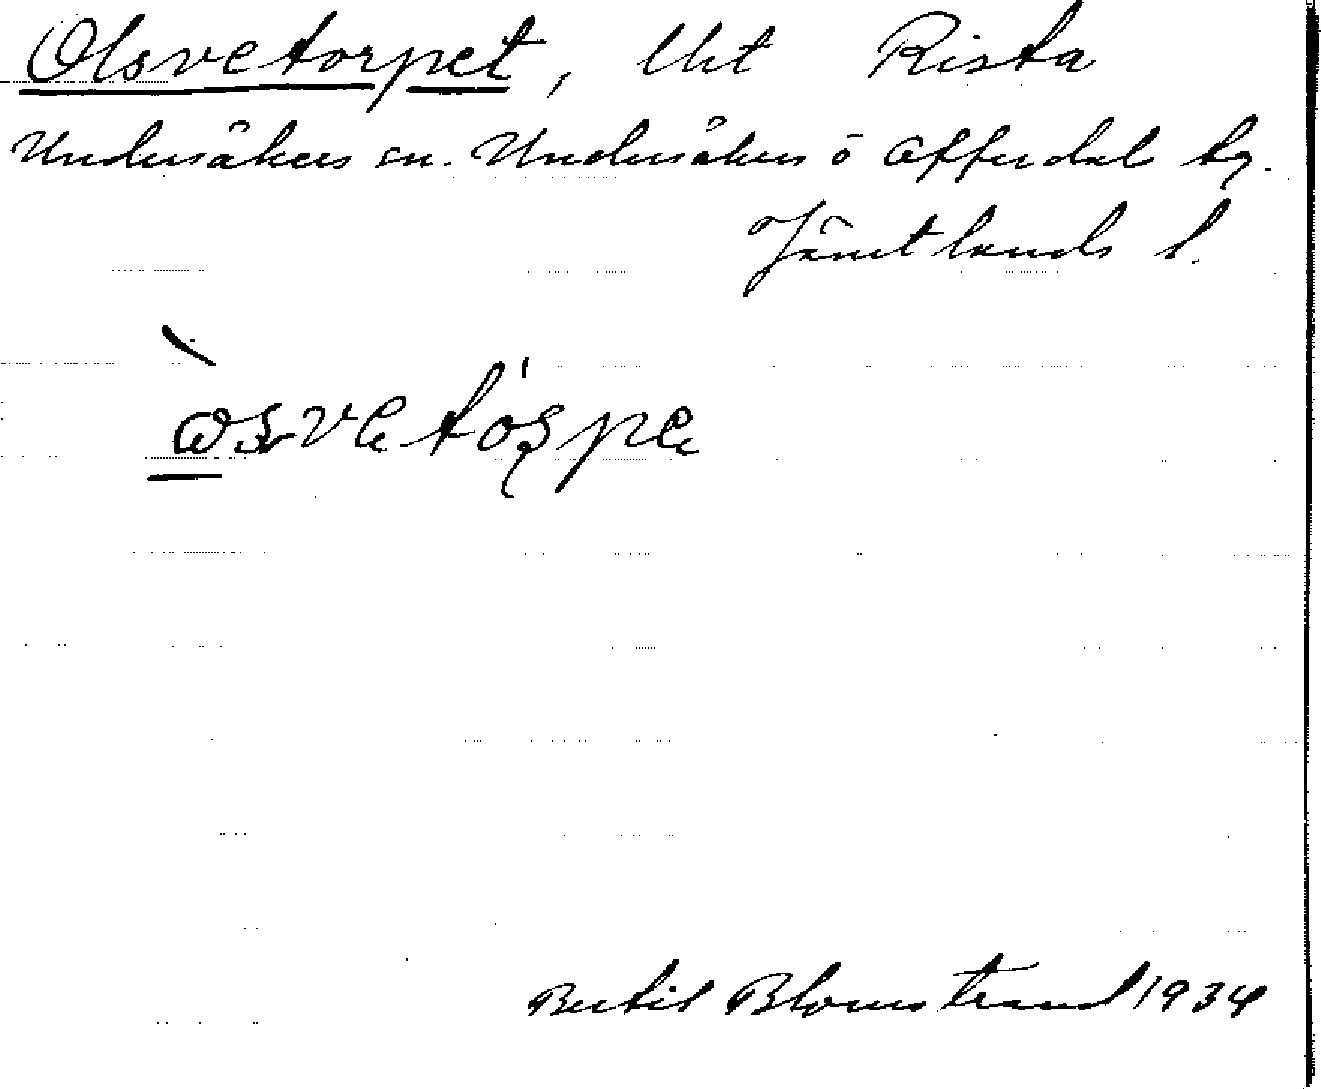 Olsvetorpet, Ut Rista
Undersåkers sn. Undersåkers o Offerdal tg.
Jämtlands l.
Bertil Blomstrand 1934